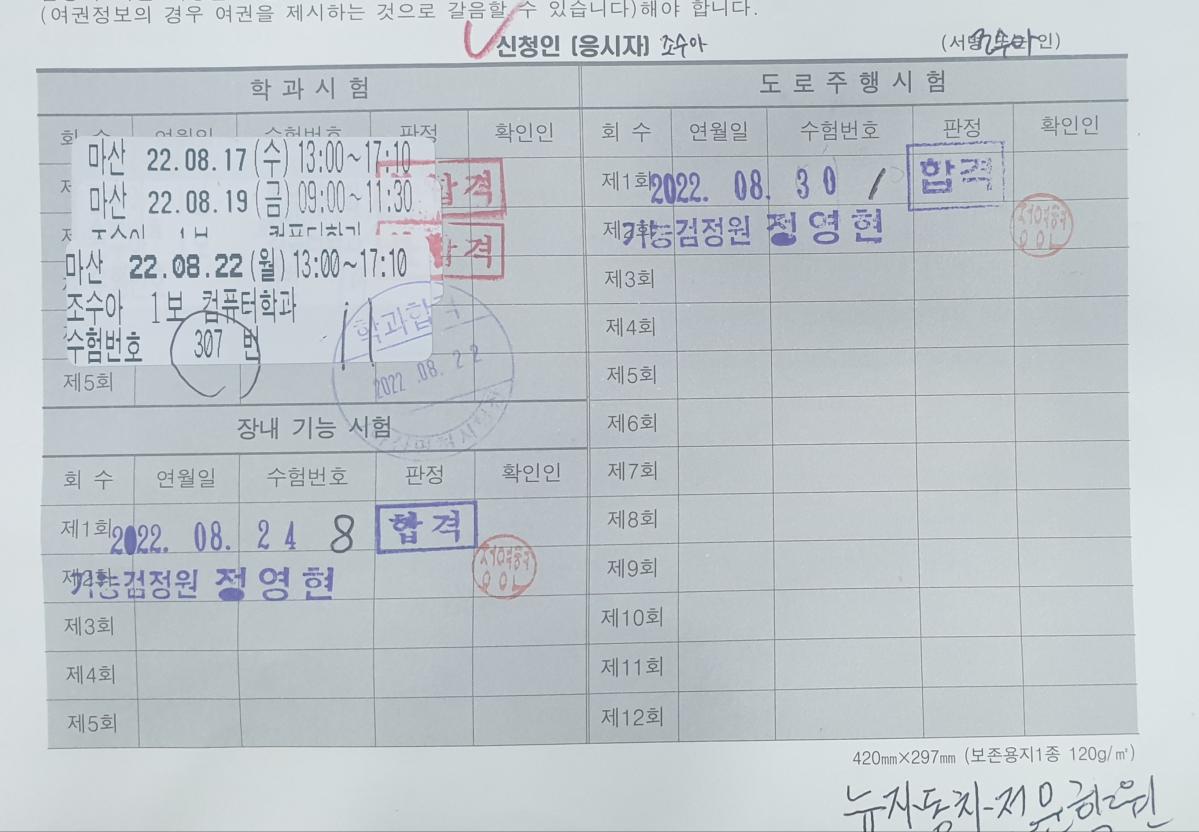 (여권정보의 경우 여권을 제시하는 것으로 갈음할 수 있습니다)해야 합니다.
신청인 (응시자) 조수아 (서명 인) 조수아
학 과 시 험
회 수 연월일 수험번호 판정 확인인
마산 22.08.17(수) 13:00~17:10
마산 22.08.19(금) 09:00~11:30
조수아 1보 컴퓨터학과
합격
합격
마산 22.08.22(월) 13:00~17:10
조수아 1보 컴퓨터학과
수험번호 307 번
학과합격
2022 .08. 22
제5회
장내 기능 시험
회 수 연월일 수험번호 판정 확인인
제1회 2022. 08. 24 8 합격
제2회 기능검정원 정영현
제3회
제4회
제5회
도 로 주 행 시 험
회 수 연월일 수험번호 판정 확인인
제1회 2022. 08. 30 1 합격
제2회 기능검정원 정영현
제3회
제4회
제5회
제6회
제7회
제8회
제9회
제10회
제11회
제12회
420㎜×297㎜ (보존용지1종 120g/㎡)